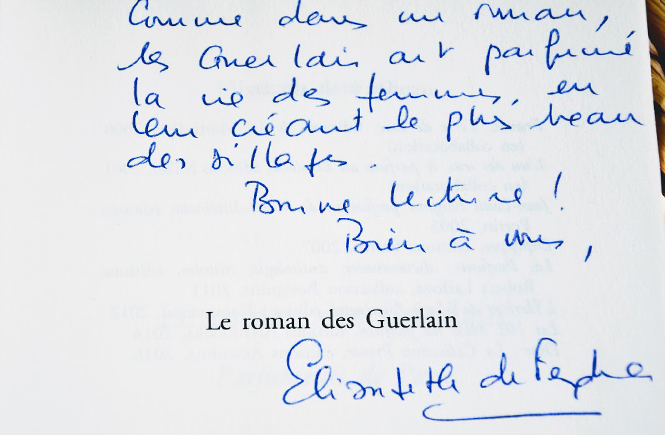 Comme dans un roman,
les Guerlain ont parfumé
la vie des femmes, en
leur créant le plus beau
des sillages.
Bonne lecture !
Bien à vous,
Le roman des Guerlain
Elisabeth de Feydeau